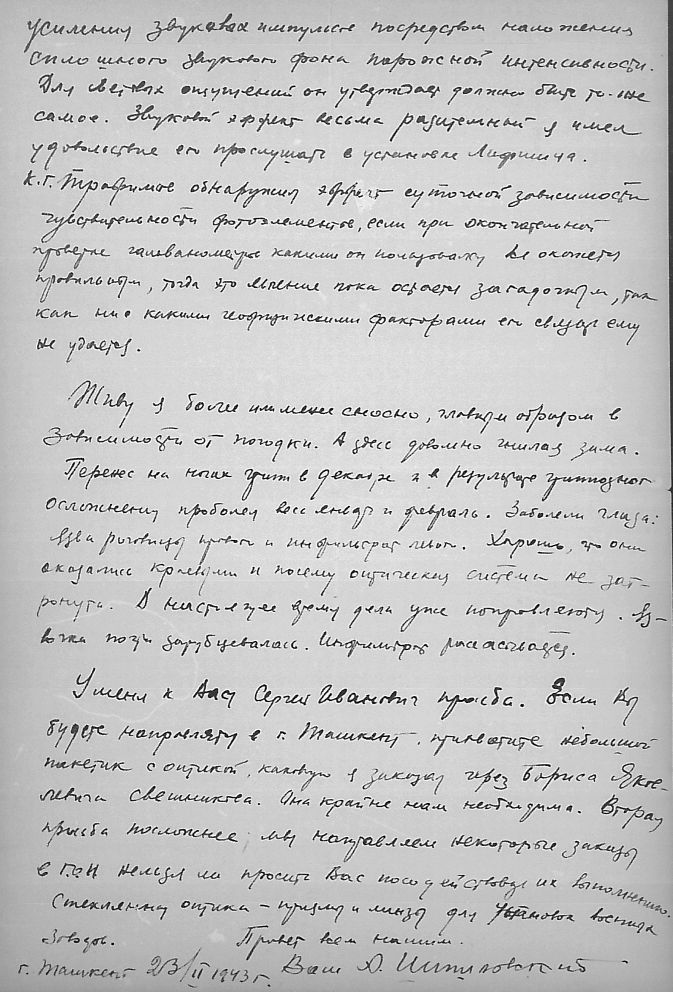 усиления звуковых импульсов посредством наложения
сплошного звукового фона пороговой интенсивности.
Для световых ощущений он утверждает должно быть то-же
самое. Звуковой эффект весьма разительный я имел
удовольствие его прослушать в установке Лифшица.
К.Г. Трофимов обнаружил эффект суточной зависимости
чувствительности фотоэлементов, если при окончательной
проверке гальванометры какими он пользовался все окажется
правильным, тогда это явление пока остается загадочным, так
как ни с какими геофизическими факторами его связать ему
не удается.
Живу я более или менее сносно, главным образом в
зависимости от погоды. А здесь довольно гнилая зима.
Перенес на ногах грипп в декабре и в результате гриппозного
осложнения проболел весь январь и февраль. Заболели глаза:
язва роговицы правого и инфильтрат левого. Хорошо, что они
оказались краевыми и посему оптическая система не зат-
ронута. В настоящее время дела уже поправляются. Яз-
вочка почти зарубцевалась. Инфильтрат рассасывается.
У меня к Вам Сергей Иванович просьба. Если Вы
будете направлять в г. Ташкент, прихватите небольшой
пакетик с оптикой, каковую я заказал через Бориса Яков-
левича Свешникова. Она крайне нам необходима. Вторая
просьба посложнее, мы направляем некоторые заказы
в нельзя ли просить Вас посодействовать их выполнению.
Стеклянная оптика – призмы и линзы для установок
заводов. Привет всем нашим.
г. Ташкент 23/II 1943 г. Ваш